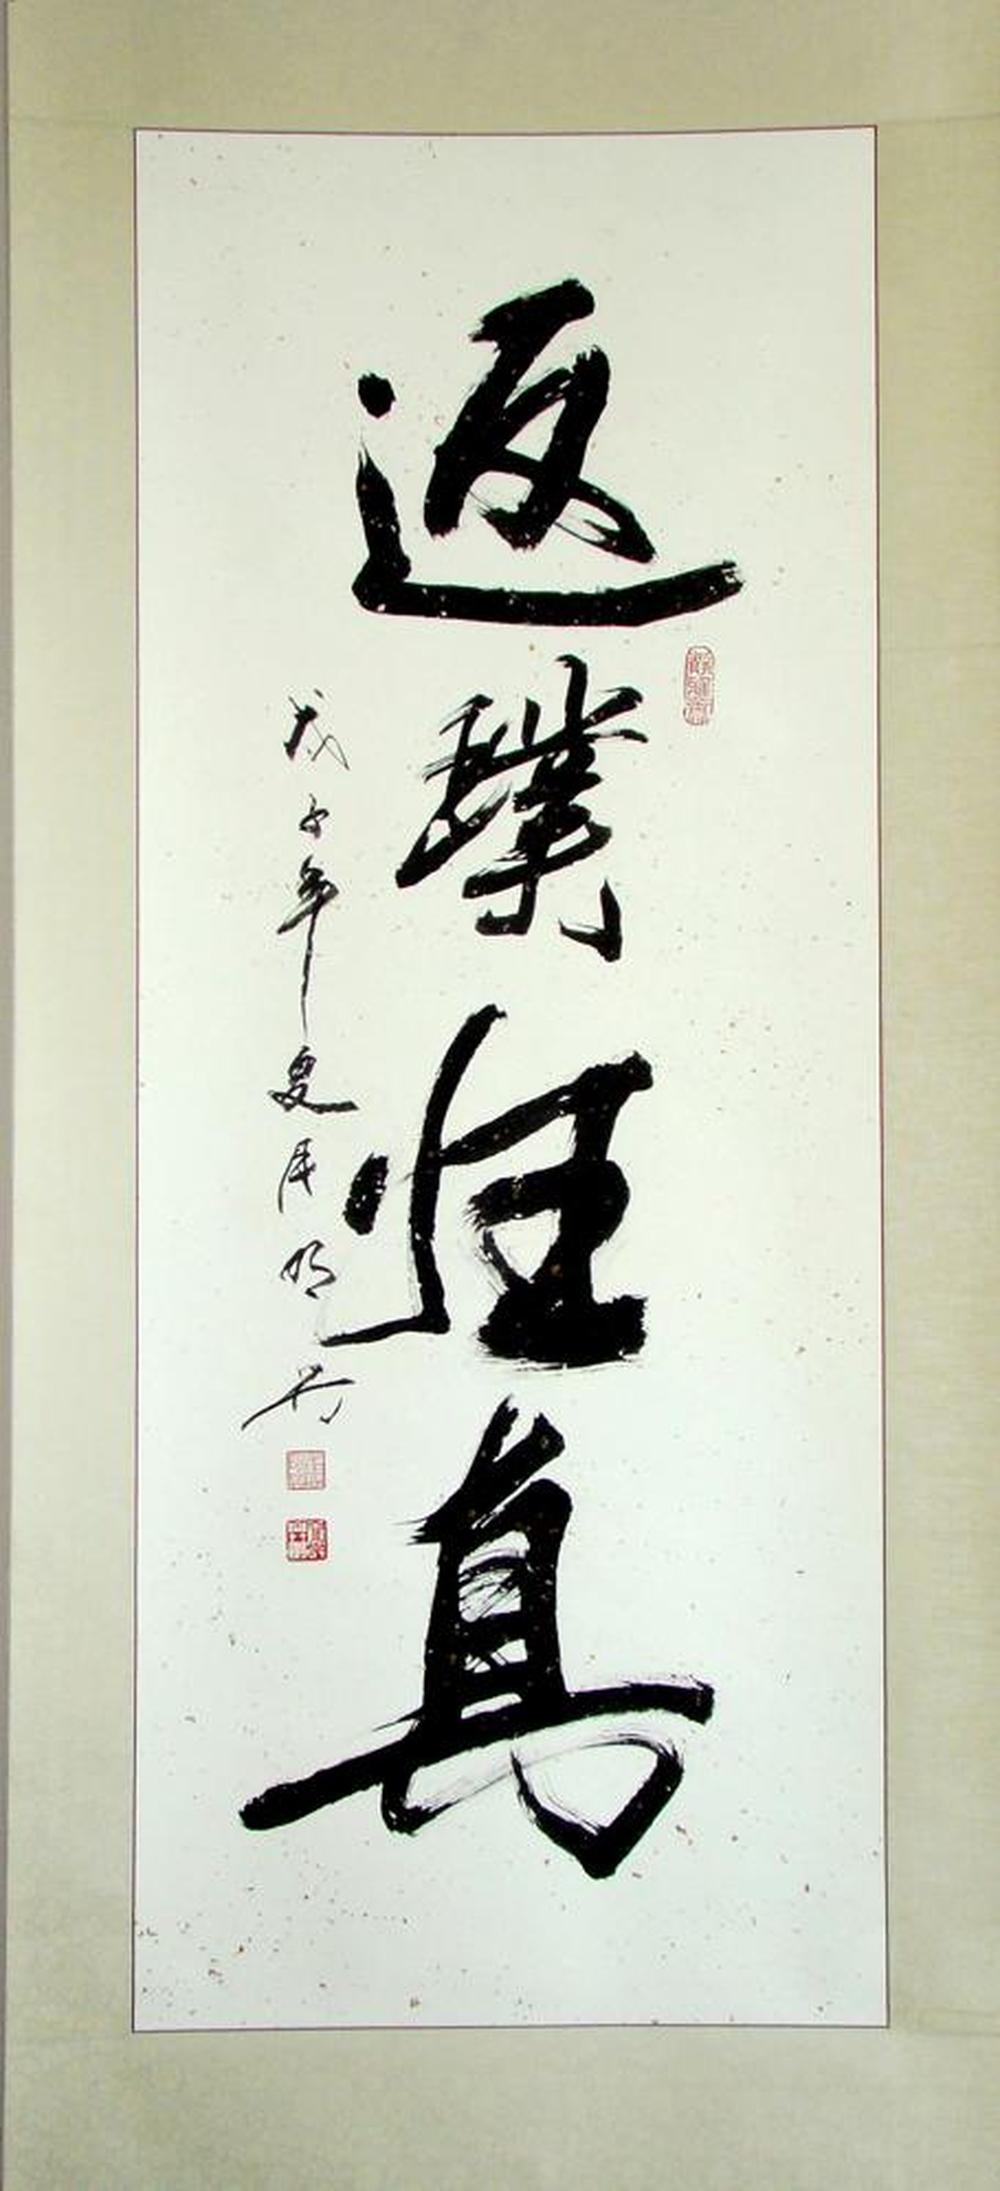 返璞归真
戊子年夏月明